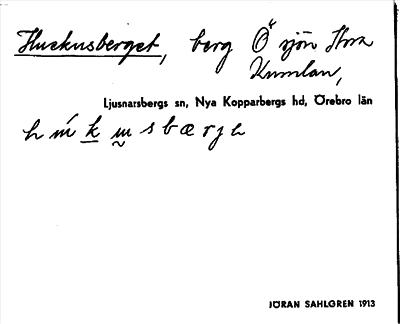 Huckusberget, berg Ö sjön Stora
Kumlan,
Ljusnarsbergs sn, Nya Kopparbergs hd, Örebro län
JÖRAN SAHLGREN 1913